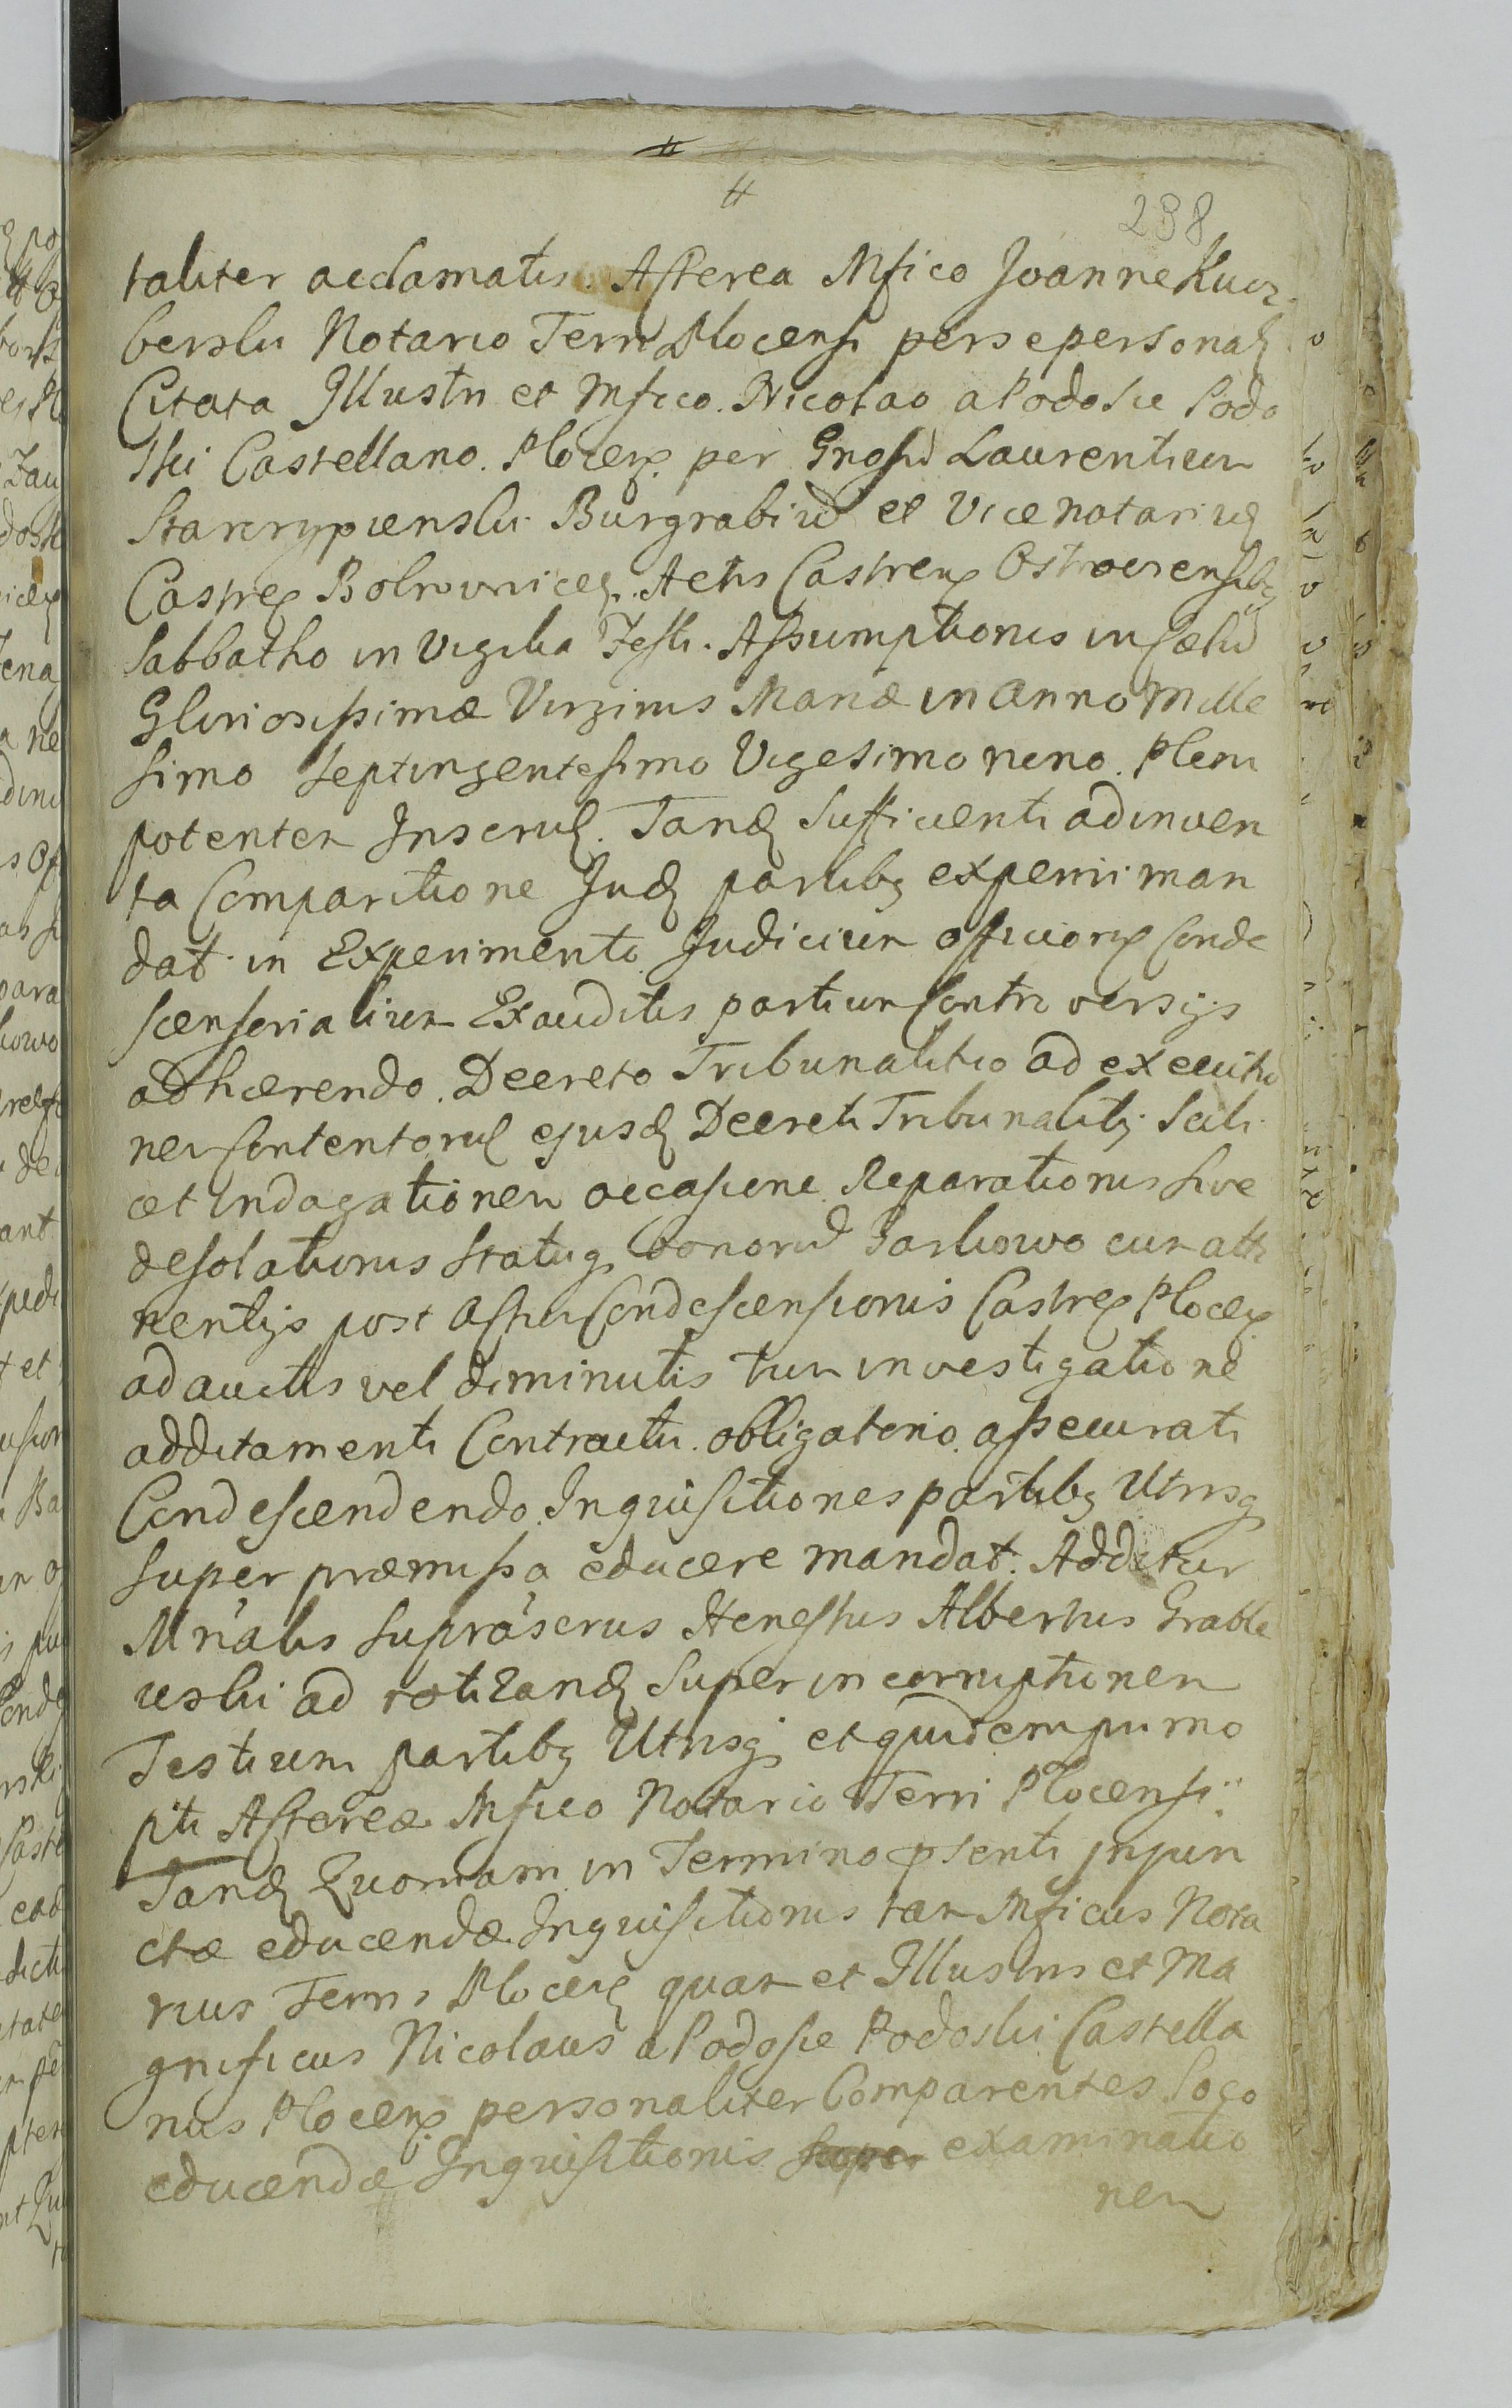 #
#
238
taliter acclamatis. Asterea Mfico Joanne Kucz
berski Notario Terri Plocensi per se personal
Citata Illustri et Mfico. Nicolao a Podosie Podo
ski Castellano. Plocen per Gnosum Laurentium
Starczypienski Burgrabium et Vicenotarium
Castren Bobrovnicen. Actis Castren Ostroviensibq
Sabbatho in Vigilia Festi. Assumptionis in Cœlum
Gloriosissimæ Virginis Mariæ in Anno Mille
simo Septingentesimo Vigesimo nono. Pleni
potenter Inscrul. Tand Sufficienti adinven
ta Comparitione Jud partibq experiri man
dat in Experimento Judicium officiorum Conde
scensorialium Exauditis partium Contro versijs
adhærendo. Decreto Tribunalitio ad executio
nem Contentorum ejusd Decreti Tribunalitij Scili
cet Indagationem occasione Reparationis sive
desolationis Statuq bonorum Jarkowo cum atti
nentijs post Actum Condescensionis Castren Plocen
adauctis vel diminutis tum investigatione
additamenti Contractu. obligatorio assecurati
Condescendendo Inquisitiones partibq Utrisq
super præmissa educere mandat. Additur
Mrialis Suprascrus Honestus Albertus Grable
uski ad rotizand Super in corruptionem
Testium partibq Utrisq et quidem primo
pti Astereæ Mfico Notario Terri Plocensi
Tand Quoniam in Termino psenti injun
ctæ educendæ Inquisitionis tam Mficus Nota
rius Terris Plocen quam et Illustris et Ma
gnificus Nicolaus a Podosie Podoski Castella
nus Plocen personaliter Comparentes Loco
educendæ Inquisitionis super examinatio
nem